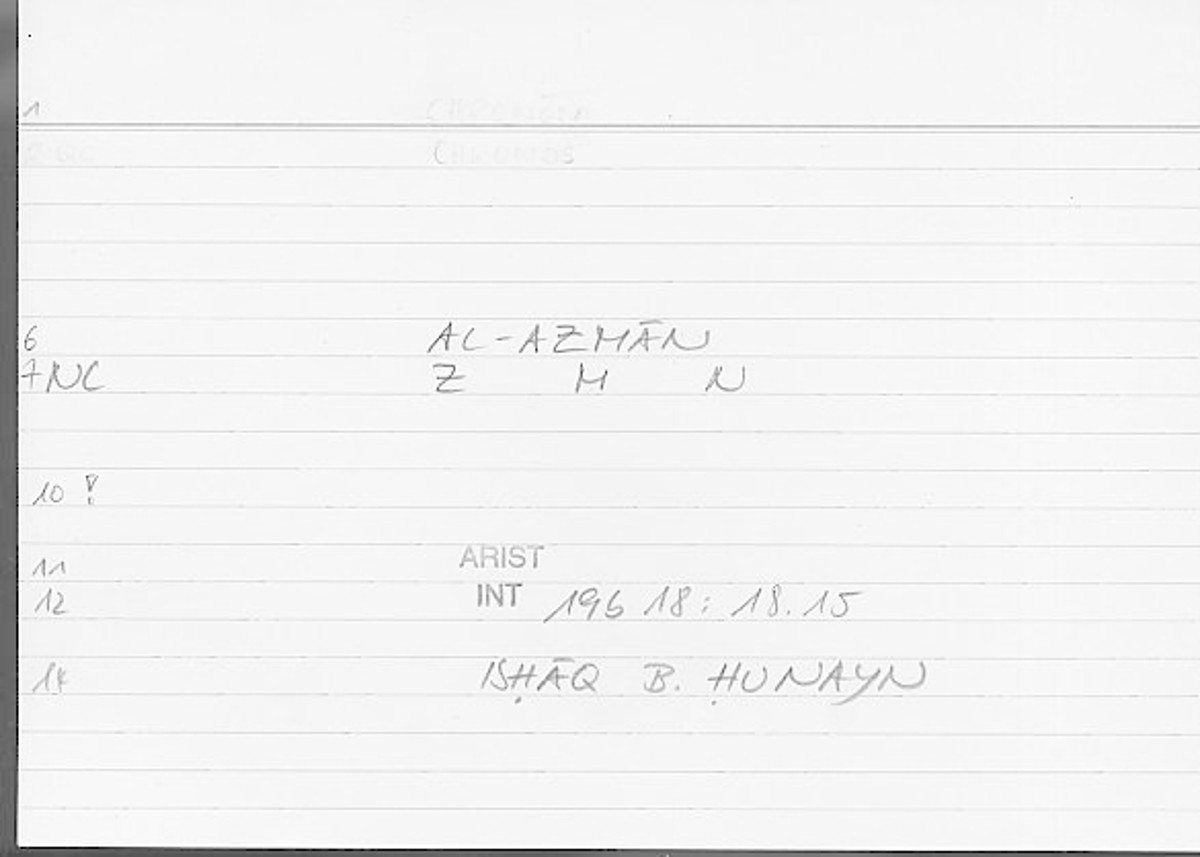 1
6 AL-AZMĀN
7NC Z M N
10 !
11 ARIST
12 INT 196 18: 18.15
14 ISḤĀQ B. ḤUNAYN